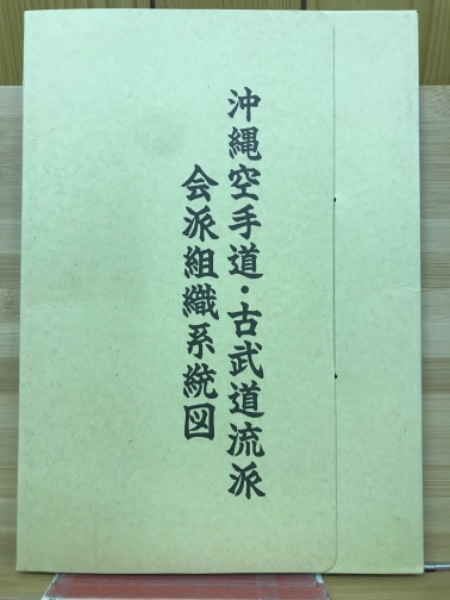 沖縄空手道・古武道流派
会派組織系統図